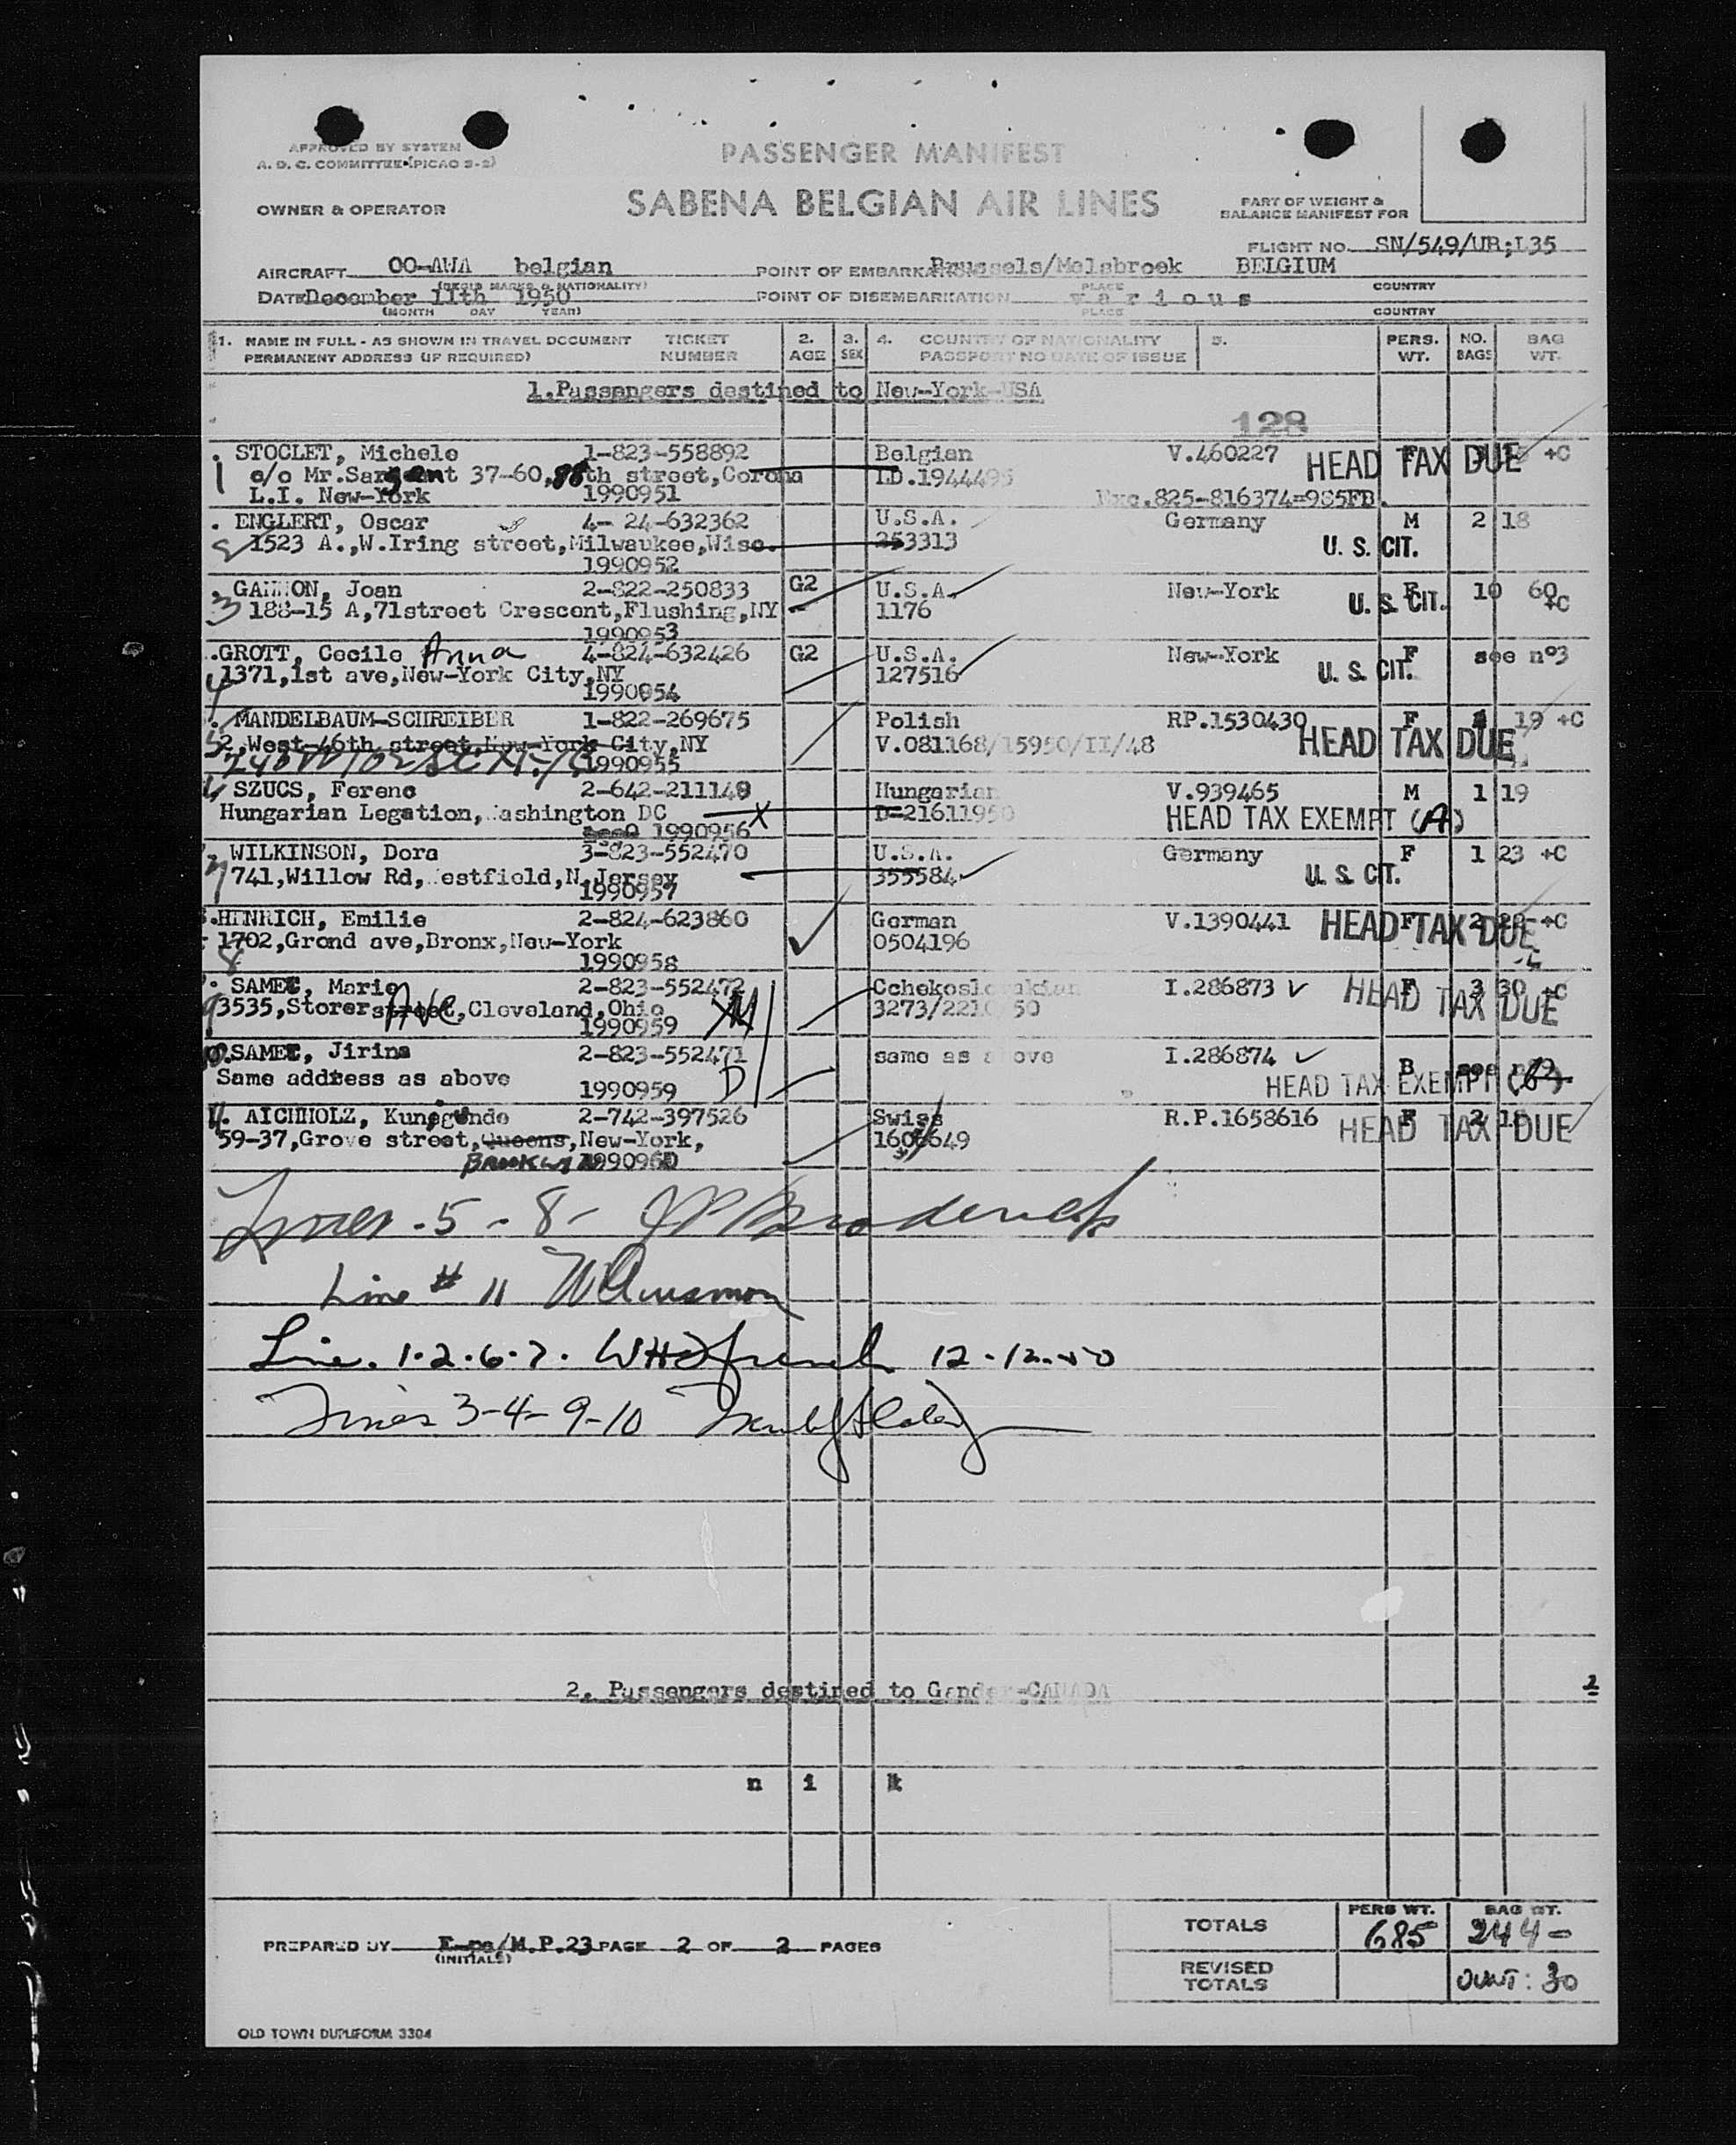 APPROVED BY SYSTEM
A. D. C. COMMITTEE (PICAO 3-2)
PASSENGER MANIFEST
SABENA BELGIAN AIR LINES
OWNER & OPERATOR
PART OF WEIGHT &
BALANCE MANIFEST FOR
FLIGHT NO. SN/549/UR;L35
AIRCRAFT OO-AWA belgian POINT OF EMBARKATION Brussels/Melsbroek BELGIUM
(REGIS MARKS & NATIONALITY) PLACE COUNTRY
DATE December 11th 1950 POINT OF DISEMBARKATION various
(MONTH DAY YEAR) PLACE COUNTRY
1. NAME IN FULL - AS SHOWN IN TRAVEL DOCUMENT TICKET 2. 3. 4. COUNTRY OF NATIONALITY 5. PERS. NO. BAG
PERMANENT ADDRESS (IF REQUIRED) NUMBER AGE SEX PASSPORT NO DATE OF ISSUE WT. BAGS WT.
1.Passengers destined to New-York-USA
128
STOCLET, Michele 1-823-558892 Belgian V.460227 F +C
HEAD TAX DUE
1 c/o Mr.Sargent 37-60,98th street,Corona LD.1944495
L.I. New-York 1990951 Exc.825-816374=985FB.
ENGLERT, Oscar 4- 24-632362 U.S.A. Germany M 2 18
2 1523 A.,W.Iring street,Milwaukee,Wisc. 253313 U. S. CIT.
1990952
GANNON, Joan 2-822-250833 G2 U.S.A. New-York F 10 60
3 188-15 A,71street Crescent,Flushing,NY 1176 U. S. CIT. +C
1990953
GROTT, Cecile Anna 4-824-632426 G2 U.S.A. New-York F see n°3
4 1371,1st ave,New-York City,NY 127516 U. S. CIT.
1990954
MANDELBAUM-SCHREIBER 1-822-269675 Polish RP.1530430 F 19 +C
5 2,West-46th street,New-York City,NY V.081168/15950/II/48 HEAD TAX DUE
1990955
SZUCS, Ferenc 2-642-211149 Hungarian V.939465 M 1 19
Hungarian Legation, ashington DC X D-21611950 HEAD TAX EXEMPT (A)
1990956
WILKINSON, Dora 3-823-552470 U.S.A. Germany F 1 23 +C
7 741,Willow Rd, estfield,N.Jersey 355584 U. S. CIT.
1990957
HINRICH, Emilie 2-824-623860 German V.1390441 F 2 +C
HEAD TAX DUE
1702,Grond ave,Bronx,New-York 0504196
8 1990958
SAMEC, Marie 2-823-552472 Cchekoslovakian I.286873 F 3 30 +C
9 3535,Storer street, AVE Cleveland,Ohio 3273/2210 50 HEAD TAX DUE
1990959
10. SAMEC, Jirina 2-823-552471 same as above I.286874 B see
Same address as above 1990959 D HEAD TAX EXEMPT
11. AICHHOLZ, Kunigunde 2-742-397526 Swiss R.P.1658616 F 2 18
59-37,Grove street,Queens,New-York, HEAD TAX DUE
BROOKLYN 1990960
Lines - 5 - 8 - JP Broderick
Line # 11
Line. 1.2.6.7. 12-12-50
Lines 3-4-9-10
2. Passengers destined to Gander-CANADA 2
n i l
TOTALS PERS WT. 685 BAG WT. 244-
PREPARED BY E-pe/M.P.23 PAGE 2 OF 2 PAGES
(INITIALS)
REVISED
TOTALS : 30
OLD TOWN DUPLIFORM 3304